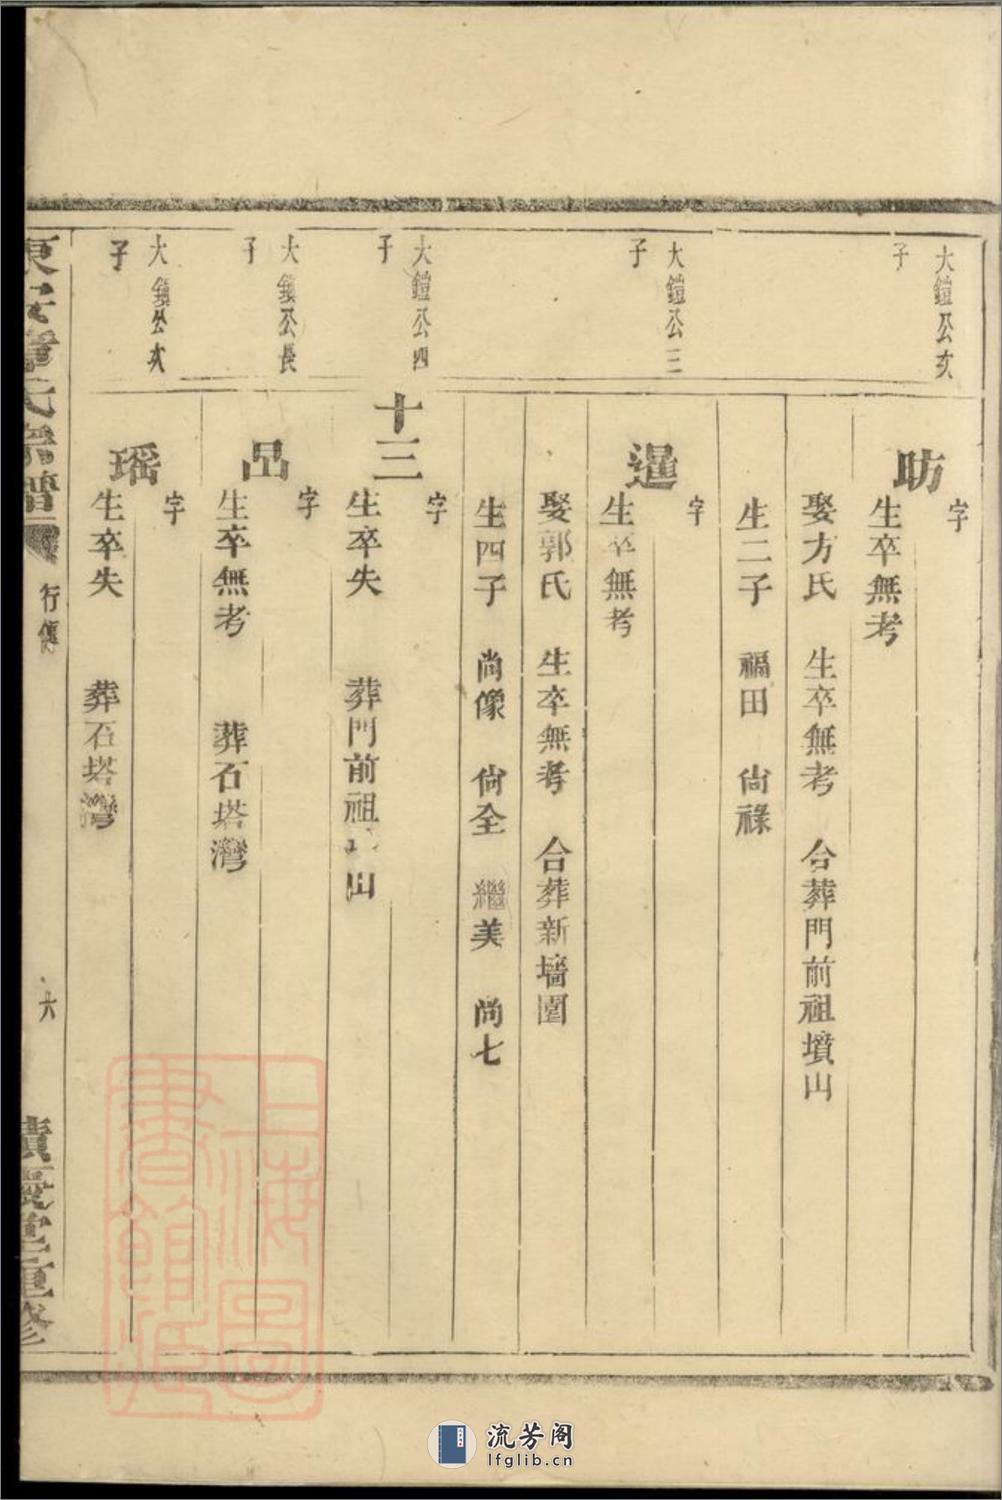 大鎧公次
子
昉
字
生卒無考
娶方氏 生卒無考 合葬門前祖墳山
生二子 福田 尙祿
大鎧公三
子
暹
字
生卒無考
娶郭氏 生卒無考 合葬新墻圍
生四子 尚像 尙全 繼美 尚七
大鎧公四
子
十三
字
生卒失 葬門前祖 山
大鎮公長
子
字
生卒無考 葬石塔灣
大鎮公次
子
瑶
字
生卒失 葬石塔灣
氏宗譜
行傳
六
慶堂重修
上海圖書館藏
流芳阁
lfglib.cn